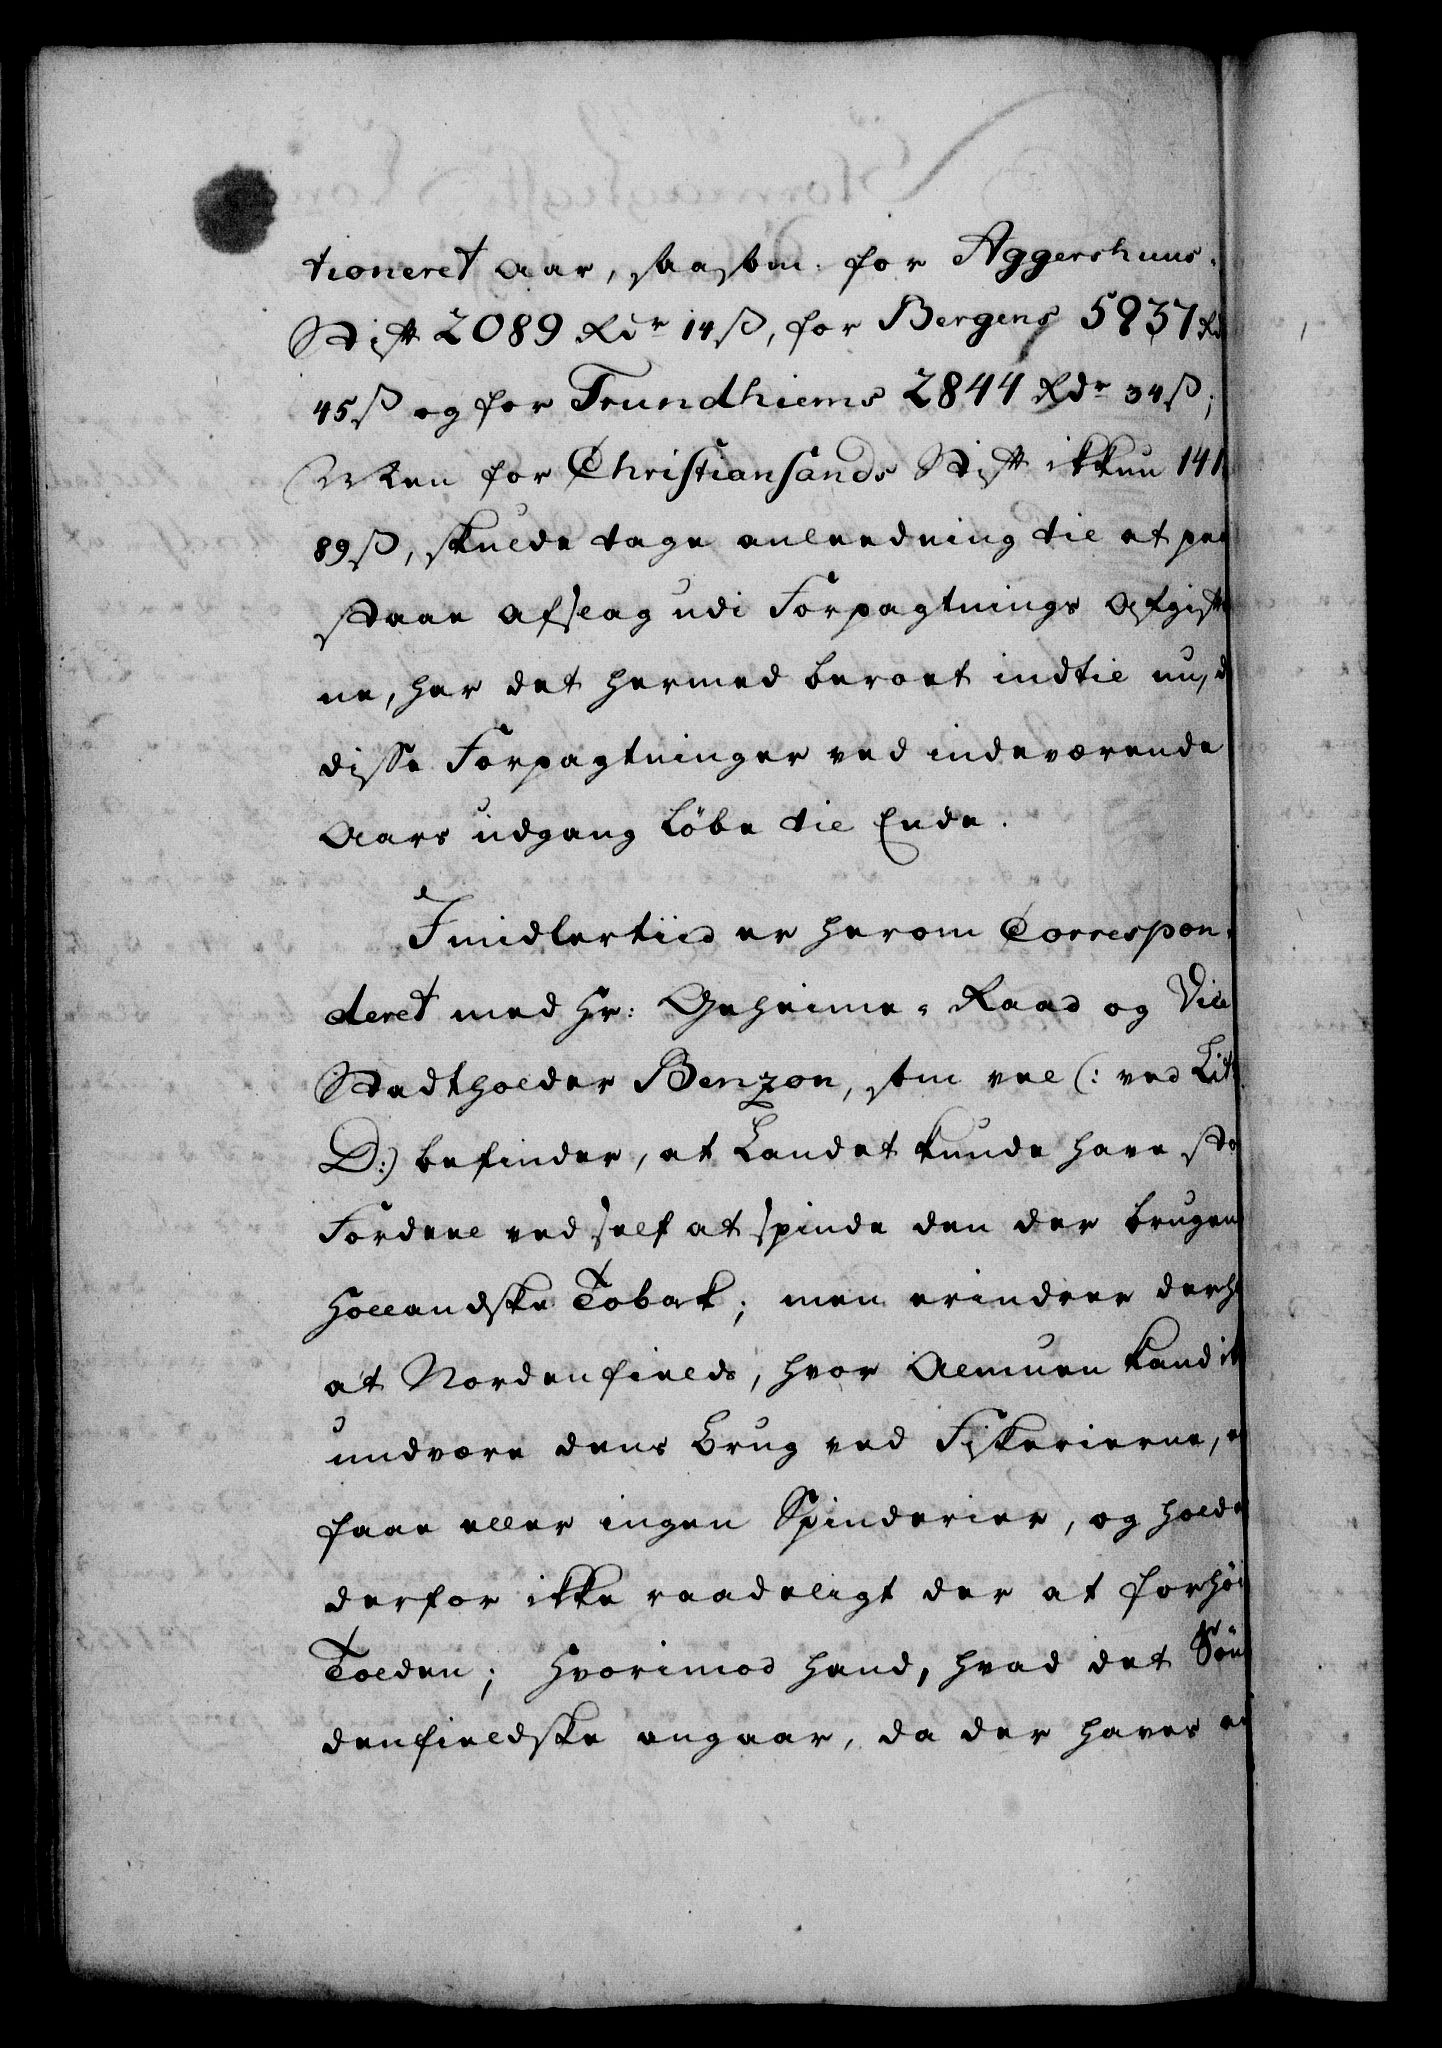 tioneret Aar, saasom: for Aggershuus-
Stift 2089 Rdr 14 ß, for Bergens 5937 Rd
45 ß og for Trundhiems 2844 Rdr 34 ß;
Men for Christiansands Stift ikkun 141
89 ß, skulde tage anleedning til at paa
staae Afslag udi Forpagtnings Afgifter
ne, har det hermed beroet indtil nu, d
disse Forpagtninger ved indeværende
Aars udgang löbe til Ende.
Imidlertiid er herom Correspon-
deret med Hr: Geheime-Raad og Vice
Stadtholder Benzon, som vel (: ved Litr
D:) befinder, at Landet kunde have sto
Fordeel ved self at spinde den der brugen
Hollandske Tobak; men erindrer derh
at Nordenfields, hvor Almuen kand ik
undvære dens Brug ved Fiskerierne, er
faae eller ingen Spinderier, og holde
derfor ikke raadeligt der at forhöi
Tolden; Hvorimod hand, hvad det Sön
denfieldske angaar, da der haves